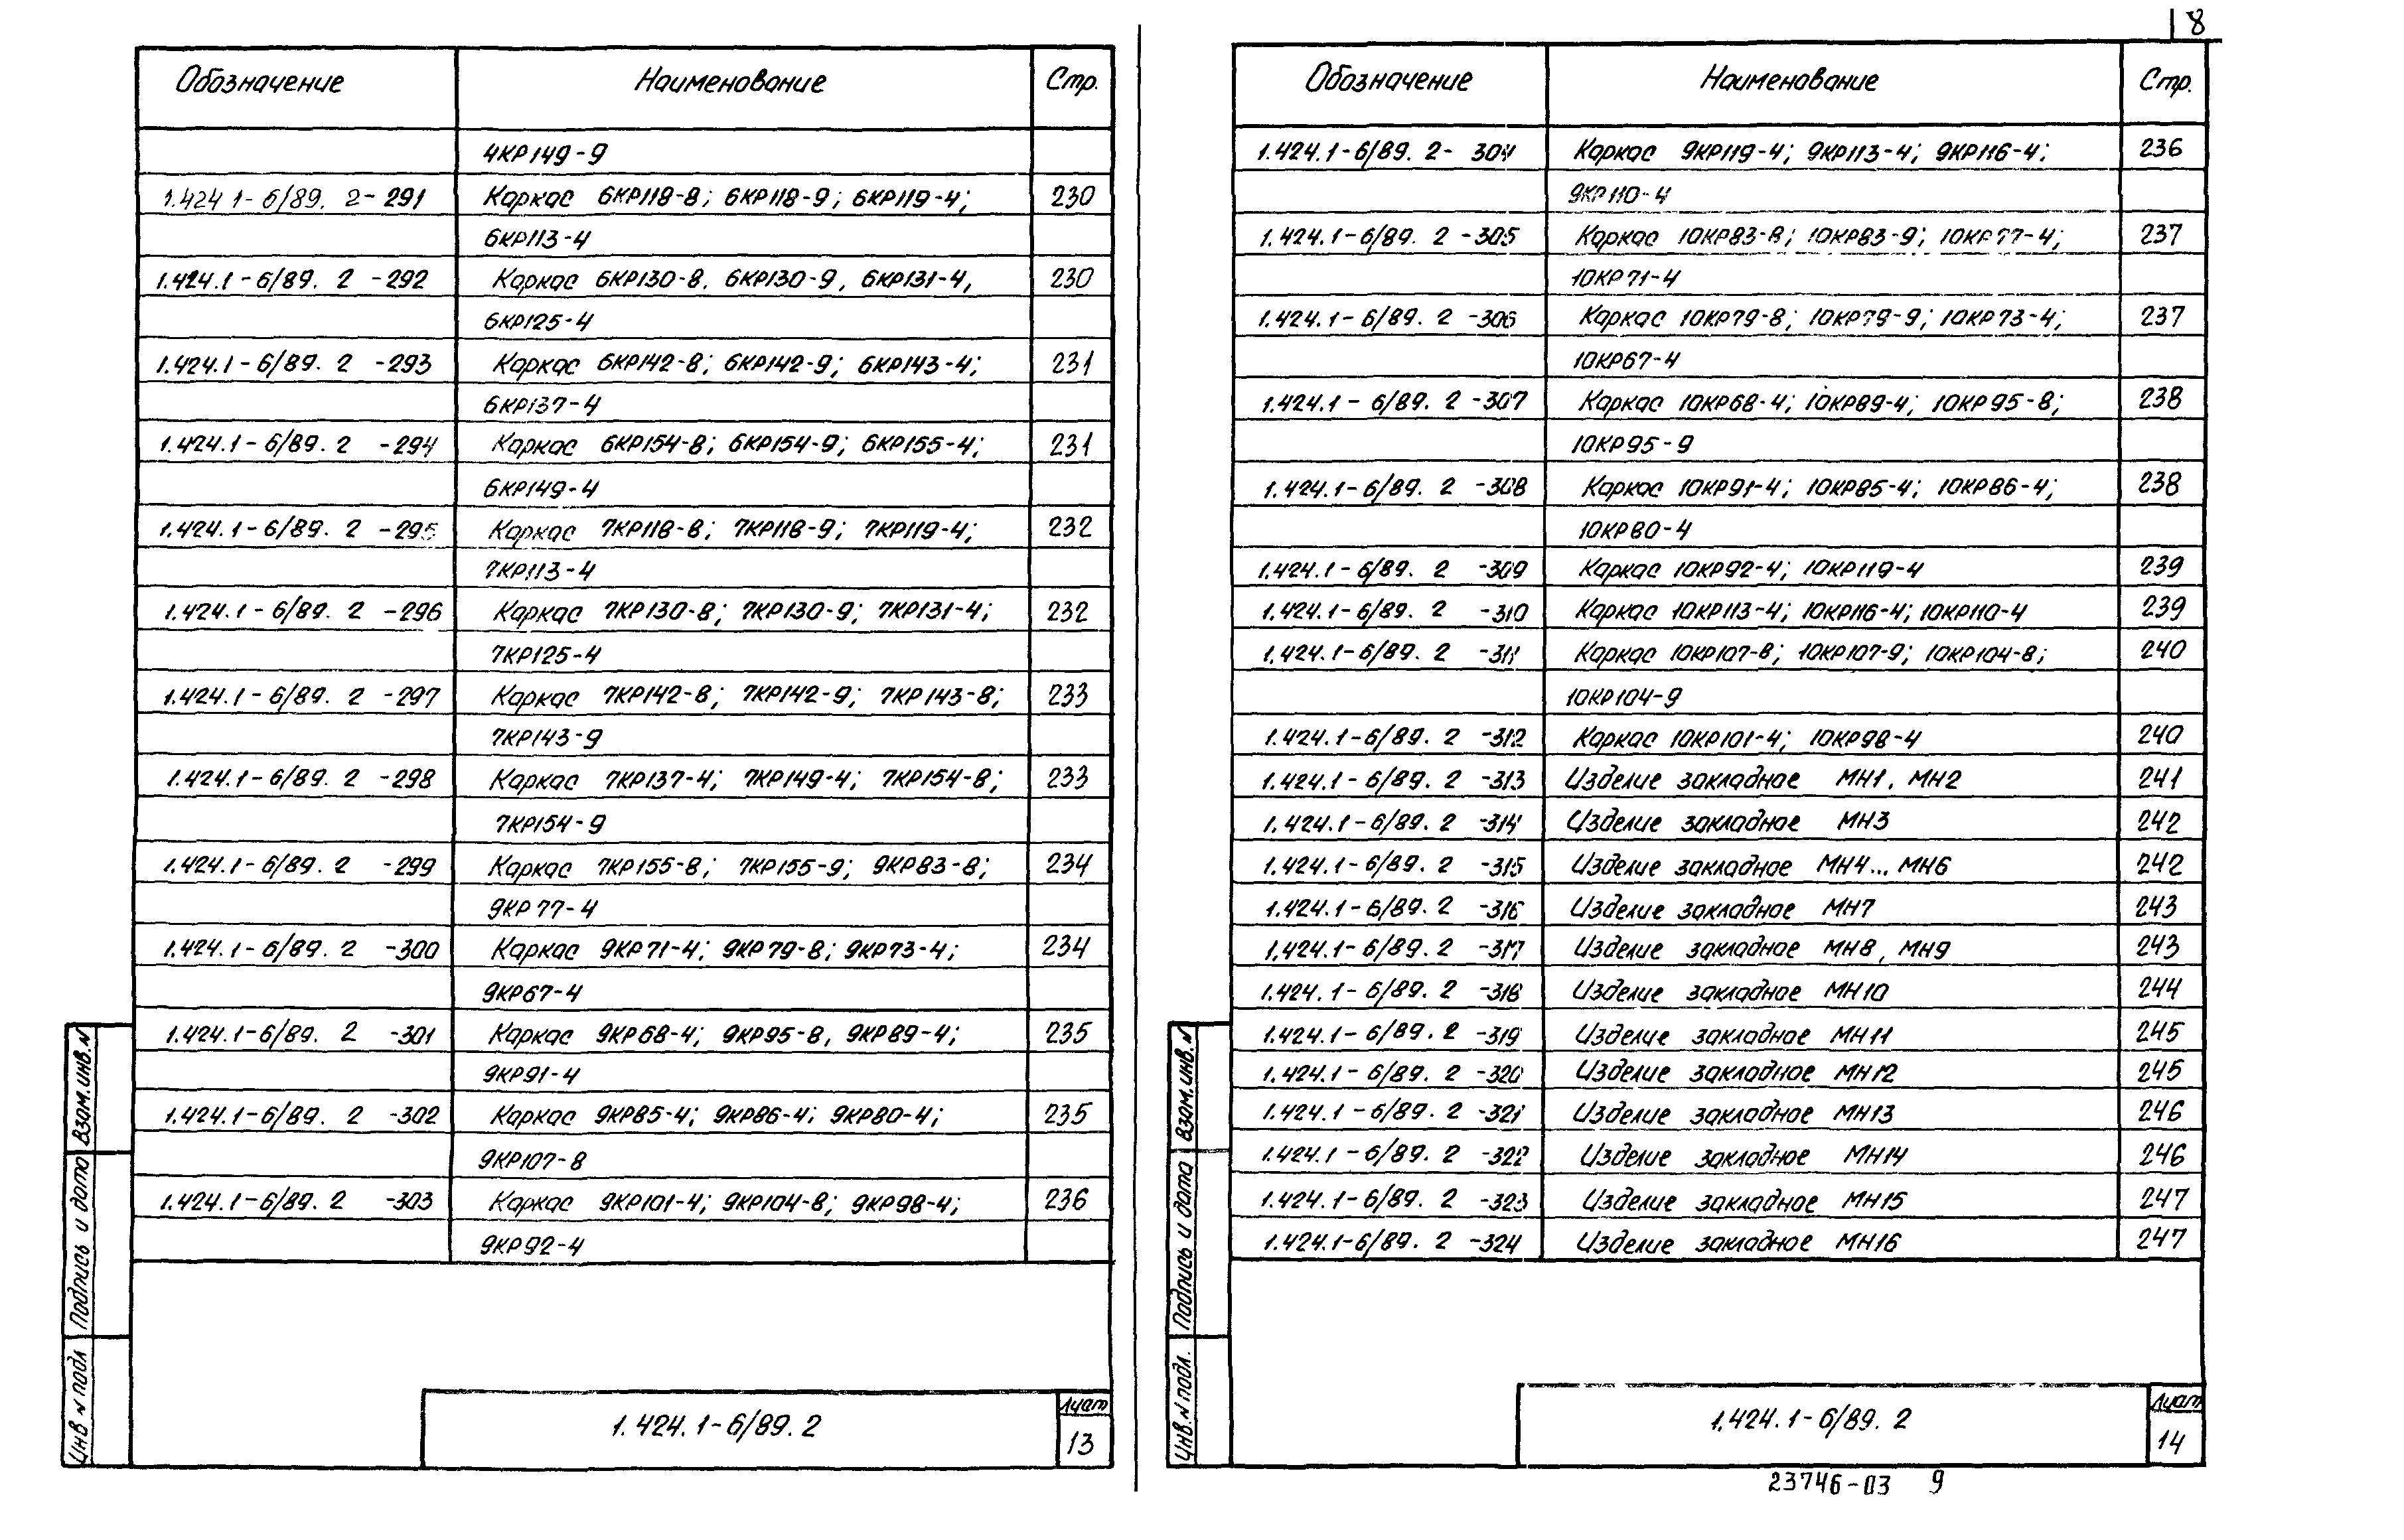 8
Обозначение Наименование Стр.
4КР149-9
1.424 1-6/89. 2-291 Каркас 6КР118-8; 6КР118-9; 6КР119-4; 230
6КР113-4
1.424.1-6/89. 2 -292 Каркас 6КР130-8. 6КР130-9, 6КР131-4, 230
6КР125-4
1.424.1-6/89. 2 -293 Каркас 6КР142-8; 6КР142-9; 6КР143-4; 231
6КР137-4
1.424.1-6/89. 2 -294 Каркас 6КР154-8; 6КР154-9; 6КР155-4; 231
6КР149-4
1.424.1-6/89. 2 -295 Каркас 7КР118-8; 7КР118-9; 7КР119-4; 232
7КР113-4
1.424.1-6/89. 2 -296 Каркас 7КР130-8; 7КР130-9; 7КР131-4; 232
7КР125-4
1.424.1-6/89. 2 -297 Каркас 7КР142-8; 7КР142-9; 7КР143-8; 233
7КР143-9
1.424.1-6/89. 2 -298 Каркас 7КР137-4; 7КР149-4; 7КР154-8; 233
7КР154-9
1.424.1-6/89. 2 -299 Каркас 7КР155-8; 7КР155-9; 9КР83-8; 234
9КР77-4
1.424.1-6/89. 2 -300 Каркас 9КР71-4; 9КР79-8; 9КР73-4; 234
9КР67-4
1.424.1-6/89. 2 -301 Каркас 9КР68-4; 9КР95-8, 9КР89-4; 235
9КР91-4
1.424.1-6/89. 2 -302 Каркас 9КР85-4; 9КР86-4; 9КР80-4; 235
9КР107-8
1.424.1-6/89. 2 -303 Каркас 9КР101-4; 9КР104-8; 9КР98-4; 236
9КР92-4
Взам.инв.N
Подпись и дата
Инв N подл
1.424.1-6/89.2
Лист
13
Обозначение Наименование Стр.
1.424.1-6/89. 2- 304 Каркас 9КР119-4; 9КР113-4; 9КР116-4; 236
9КР110-4
1.424.1-6/89. 2 -305 Каркас 10КР83-8; 10КР83-9; 10КР77-4; 237
10КР71-4
1.424.1-6/89. 2 -306 Каркас 10КР79-8; 10КР79-9; 10КР73-4; 237
10КР67-4
1.424.1-6/89. 2 -307 Каркас 10КР68-4; 10КР89-4; 10КР95-8; 238
10КР95-9
1.424.1-6/89. 2 -308 Каркас 10КР91-4; 10КР85-4; 10КР86-4; 238
10КР80-4
1.424.1-6/89. 2 -309 Каркас 10КР92-4; 10КР119-4 239
1.424.1-6/89. 2 -310 Каркас 10КР113-4; 10КР116-4; 10КР110-4 239
1.424.1-6/89. 2 -311 Каркас 10КР107-8; 10КР107-9; 10КР104-8; 240
10КР104-9
1.424.1-6/89. 2 -312 Каркас 10КР101-4; 10КР98-4 240
1.424.1-6/89. 2 -313 Изделие закладное МН1, МН2 241
1.424.1-6/89. 2 -314 Изделие закладное МН3 242
1.424.1-6/89. 2 -315 Изделие закладное МН4... МН6 242
1.424.1-6/89. 2 -316 Изделие закладное МН7 243
1.424.1-6/89. 2 -317 Изделие закладное МН8, МН9 243
1.424.1-6/89. 2 -318 Изделие закладное МН10 244
1.424.1-6/89. 2 -319 Изделие закладное МН11 245
1.424.1-6/89. 2 -320 Изделие закладное МН12 245
1.424.1-6/89. 2 -321 Изделие закладное МН13 246
1.424.1-6/89. 2 -322 Изделие закладное МН14 246
1.424.1-6/89. 2 -323 Изделие закладное МН15 247
1.424.1-6/89. 2 -324 Изделие закладное МН16 247
Взам.инв.N
Подпись и дата
Инв.N подл.
1.424.1-6/89.2
Лист
14
23746-03 9